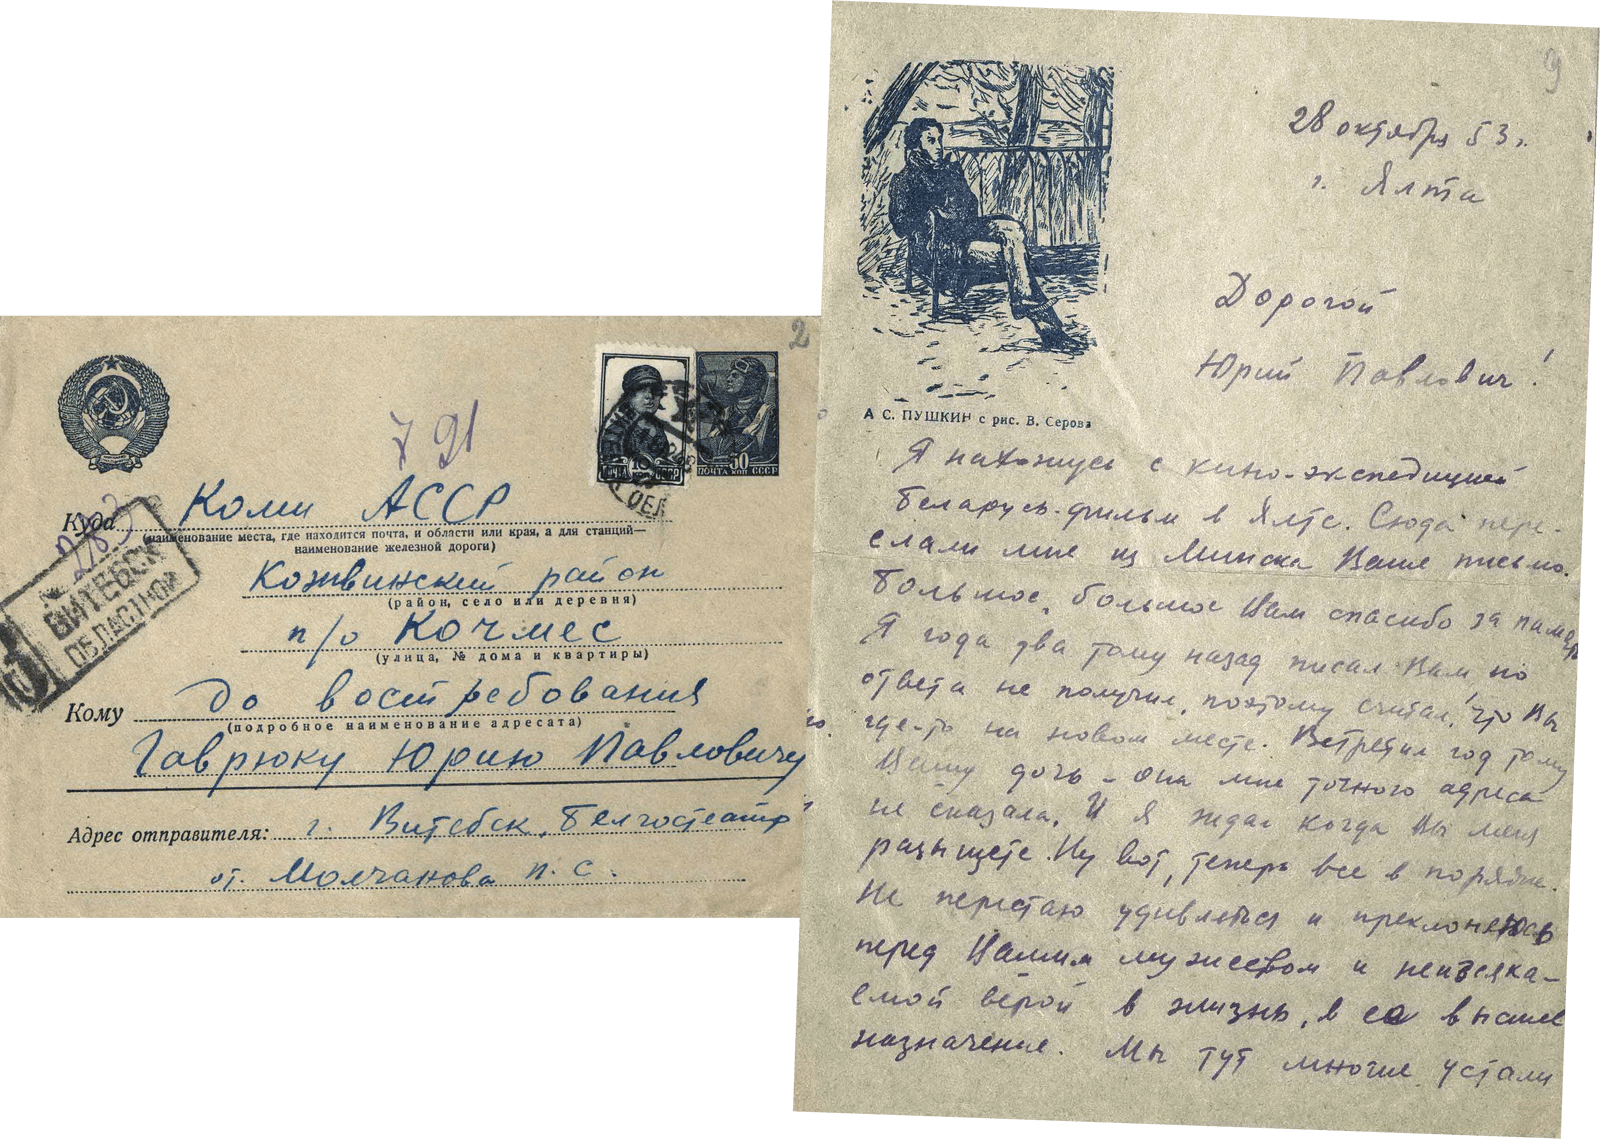 2
7 91
ПОЧТА 50 КОП СССР
Куда Коми АССР
(наименование места, где находится почта, и области или края, а для станций—
наименование железной дороги)
Кожвинский район
(район, село или деревня)
п/о Кочмес
(улица, № дома и квартиры)
Кому до востребования
(подробное наименование адресата)
Гаврюку Юрию Павловичу
Адрес отправителя: г. Витебск, Белгостеатр
от. Молчанова П. С.
№
ВИТЕБСК
ОБЛАСТНОЙ
9
28 октября 53 г.
г. Ялта
Дорогой
Юрий Павлович!
А С. ПУШКИН с рис. В. Серова
Я нахожусь с кино-экспедицией
Беларусь-фильм в Ялте. Сюда пере-
слали мне из Минска Ваше письмо.
Большое, большое Вам спасибо за память
Я года два тому назад писал Вам, но
ответа не получил, поэтому считал, что Вы
где-то на новом месте. Встретил год тому
Вашу дочь - она мне точного адреса
не сказала. И я ждал когда Вы меня
разыщете. Ну вот, теперь все в порядке.
Не перестаю удивляться и преклоняюсь
перед Вашим мужеством и неиссяка-
емой верой в жизнь, в ее высшее
назначение. Мы тут многие устали